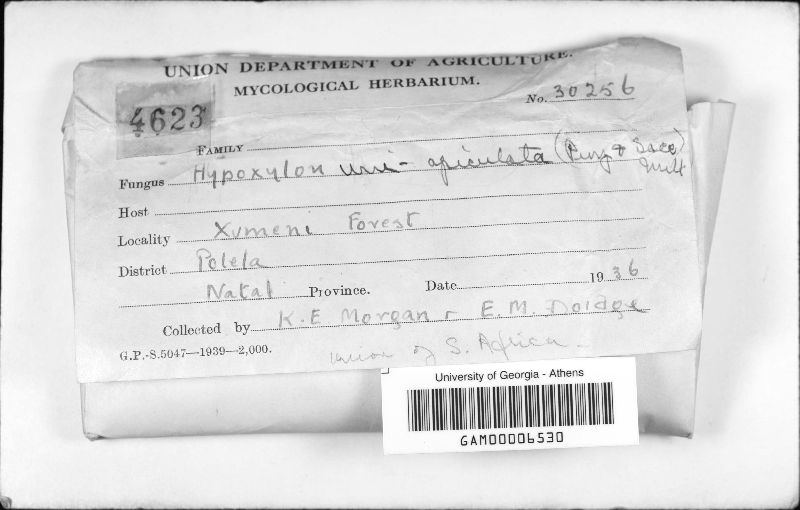 UNION DEPARTMENT OF AGRICULTURE.
MYCOLOGICAL HERBARIUM.
No. 30256
4623
FAMILY
Fungus Hypoxylon uni-apiculata (Penz & Sacc) Mill
Host
Locality Xumeni Forest
District Polela
Natal Province. Date 1936
Collected by K.E Morgan & E.M. Doidge
G.P.-S.5047—1939—2,000.
Union of S. Africa
University of Georgia - Athens
GAM00006530